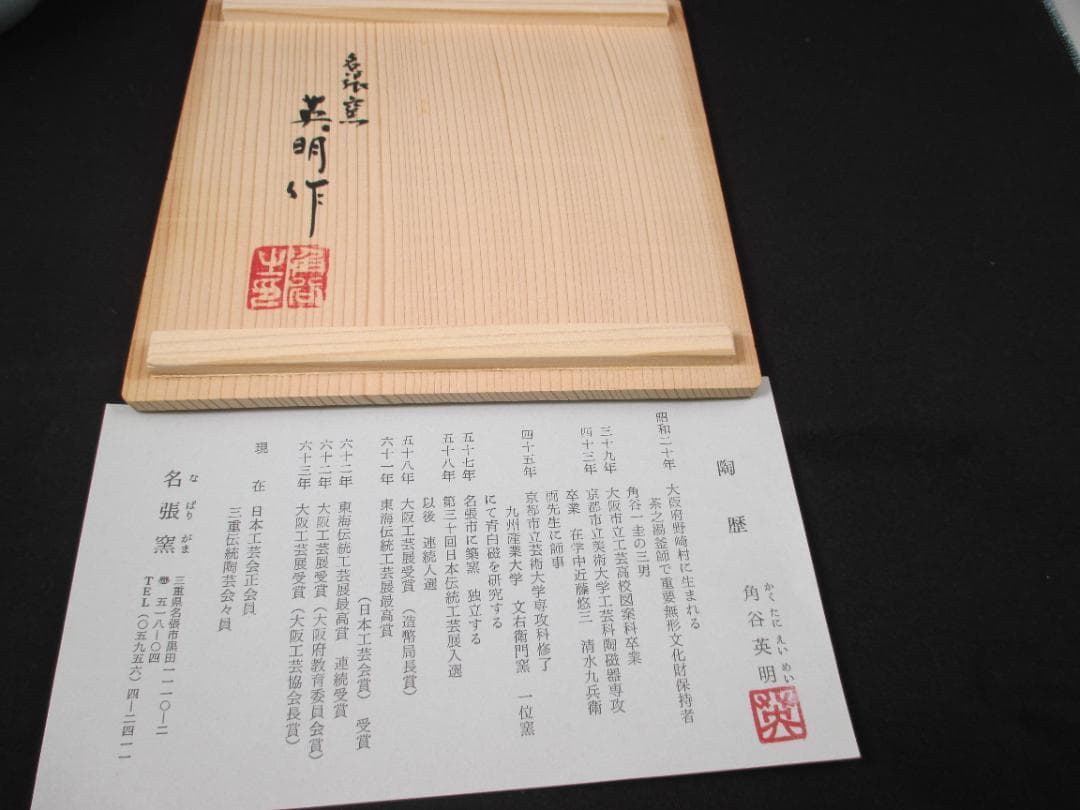 名張窯
英明作
角谷
之印
陶歴
かくたに えいめい
角谷英明
英
昭和二十年 大阪府野崎村に生まれる
茶之湯釜師で重要無形文化財保持者
角谷一圭の三男
三十九年 大阪市立工芸高校図案科卒業
四十三年 京都市立美術大学工芸科陶磁器専攻
卒業 在学中近藤悠三 清水九兵衛
両先生に師事
四十五年 京都市立芸術大学専攻科修了
九州産業大学 文右衛門窯 一位窯
にて青白磁を研究する
五十七年 名張市に築窯 独立する
五十八年 第三十回日本伝統工芸展入選
以後 連続入選
五十八年 大阪工芸展受賞（造幣局長賞）
六十一年 東海伝統工芸展最高賞
（日本工芸会賞） 受賞
六十二年 東海伝統工芸展最高賞 連続受賞
六十二年 大阪工芸展受賞（大阪府教育委員会賞）
六十三年 大阪工芸展受賞（大阪工芸協会長賞）
現在 日本工芸会正会員
三重伝統陶芸会々員
なばりがま
名張窯
三重県名張市黒田一一一〇－二
☎ 五一八－〇四
TEL（〇五九五六）四－二四一一